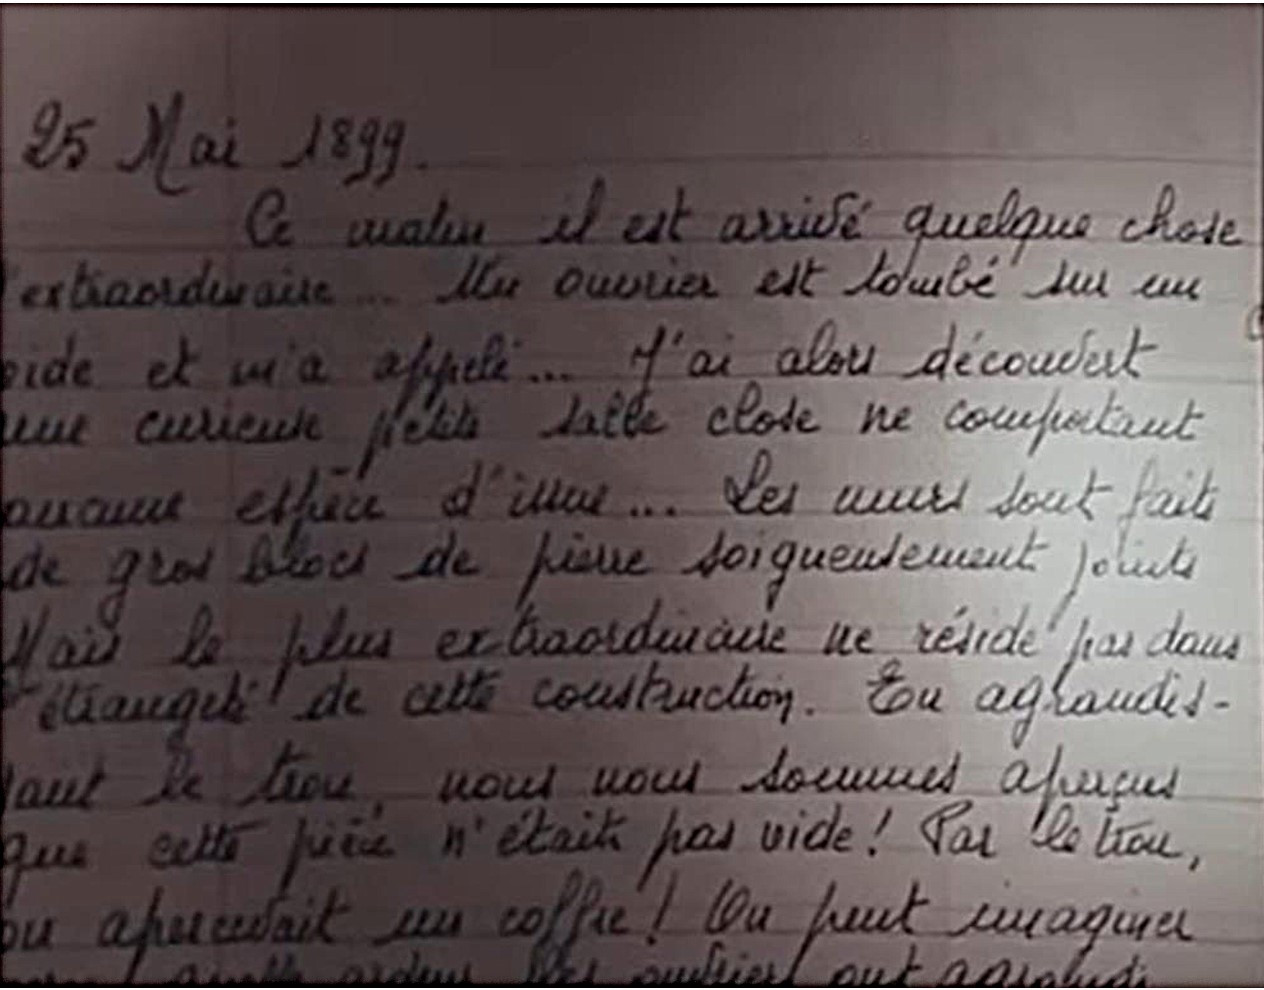 25 Mai 1899.
Ce matin il est arrivé quelque chose
extraordinaire... Un ouvrier est tombé sur un
vide et m'a appelé... J'ai alors découvert
une curieuse petite salle close ne comportant
aucune espèce d'issue... Les murs sont faits
de gros blocs de pierre soigneusement joints
Mais le plus extraordinaire ne réside pas dans
l'étrangeté de cette construction. En agrandis-
sant le trou, nous nous sommes aperçus
que cette pièce n'était pas vide! Par le trou,
on apercevait un coffre! On peut imaginer
quelle ardeur les ouvriers ont agrandi